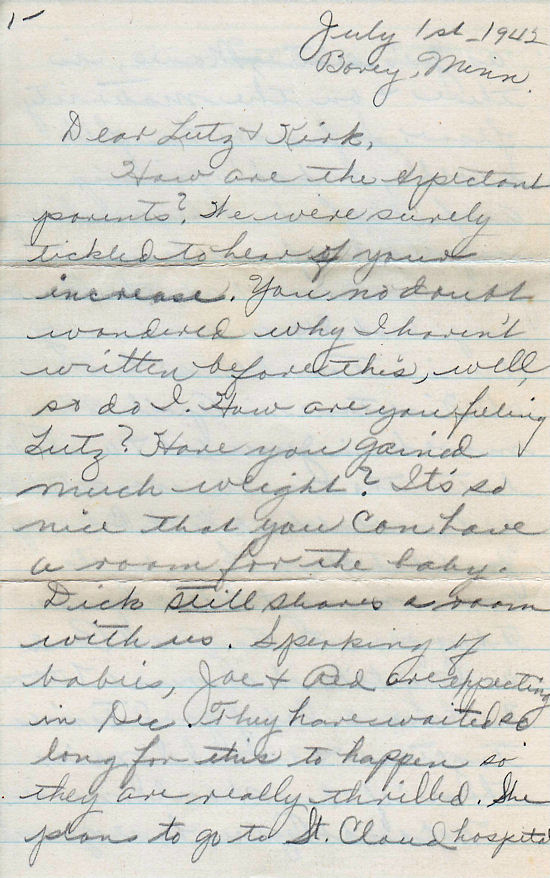 1-
July 1st-1942
Bovey, Minn.
Dear Lutz & Kirk,
How are the expectant
parents? We were surely
tickled to hear of your
increase. You no doubt
wondered why I haven't
written before this, well,
so do I. How are you feeling
Lutz? Have you gained
much weight? It's so
nice that you can have
a room for the baby.
Dick still shares a room
with us. Speaking of
babies, Joe & Red are expecting
in Dec. They have waited so
long for this to happen so
they are really thrilled. She
plans to go to St. Cloud hospital